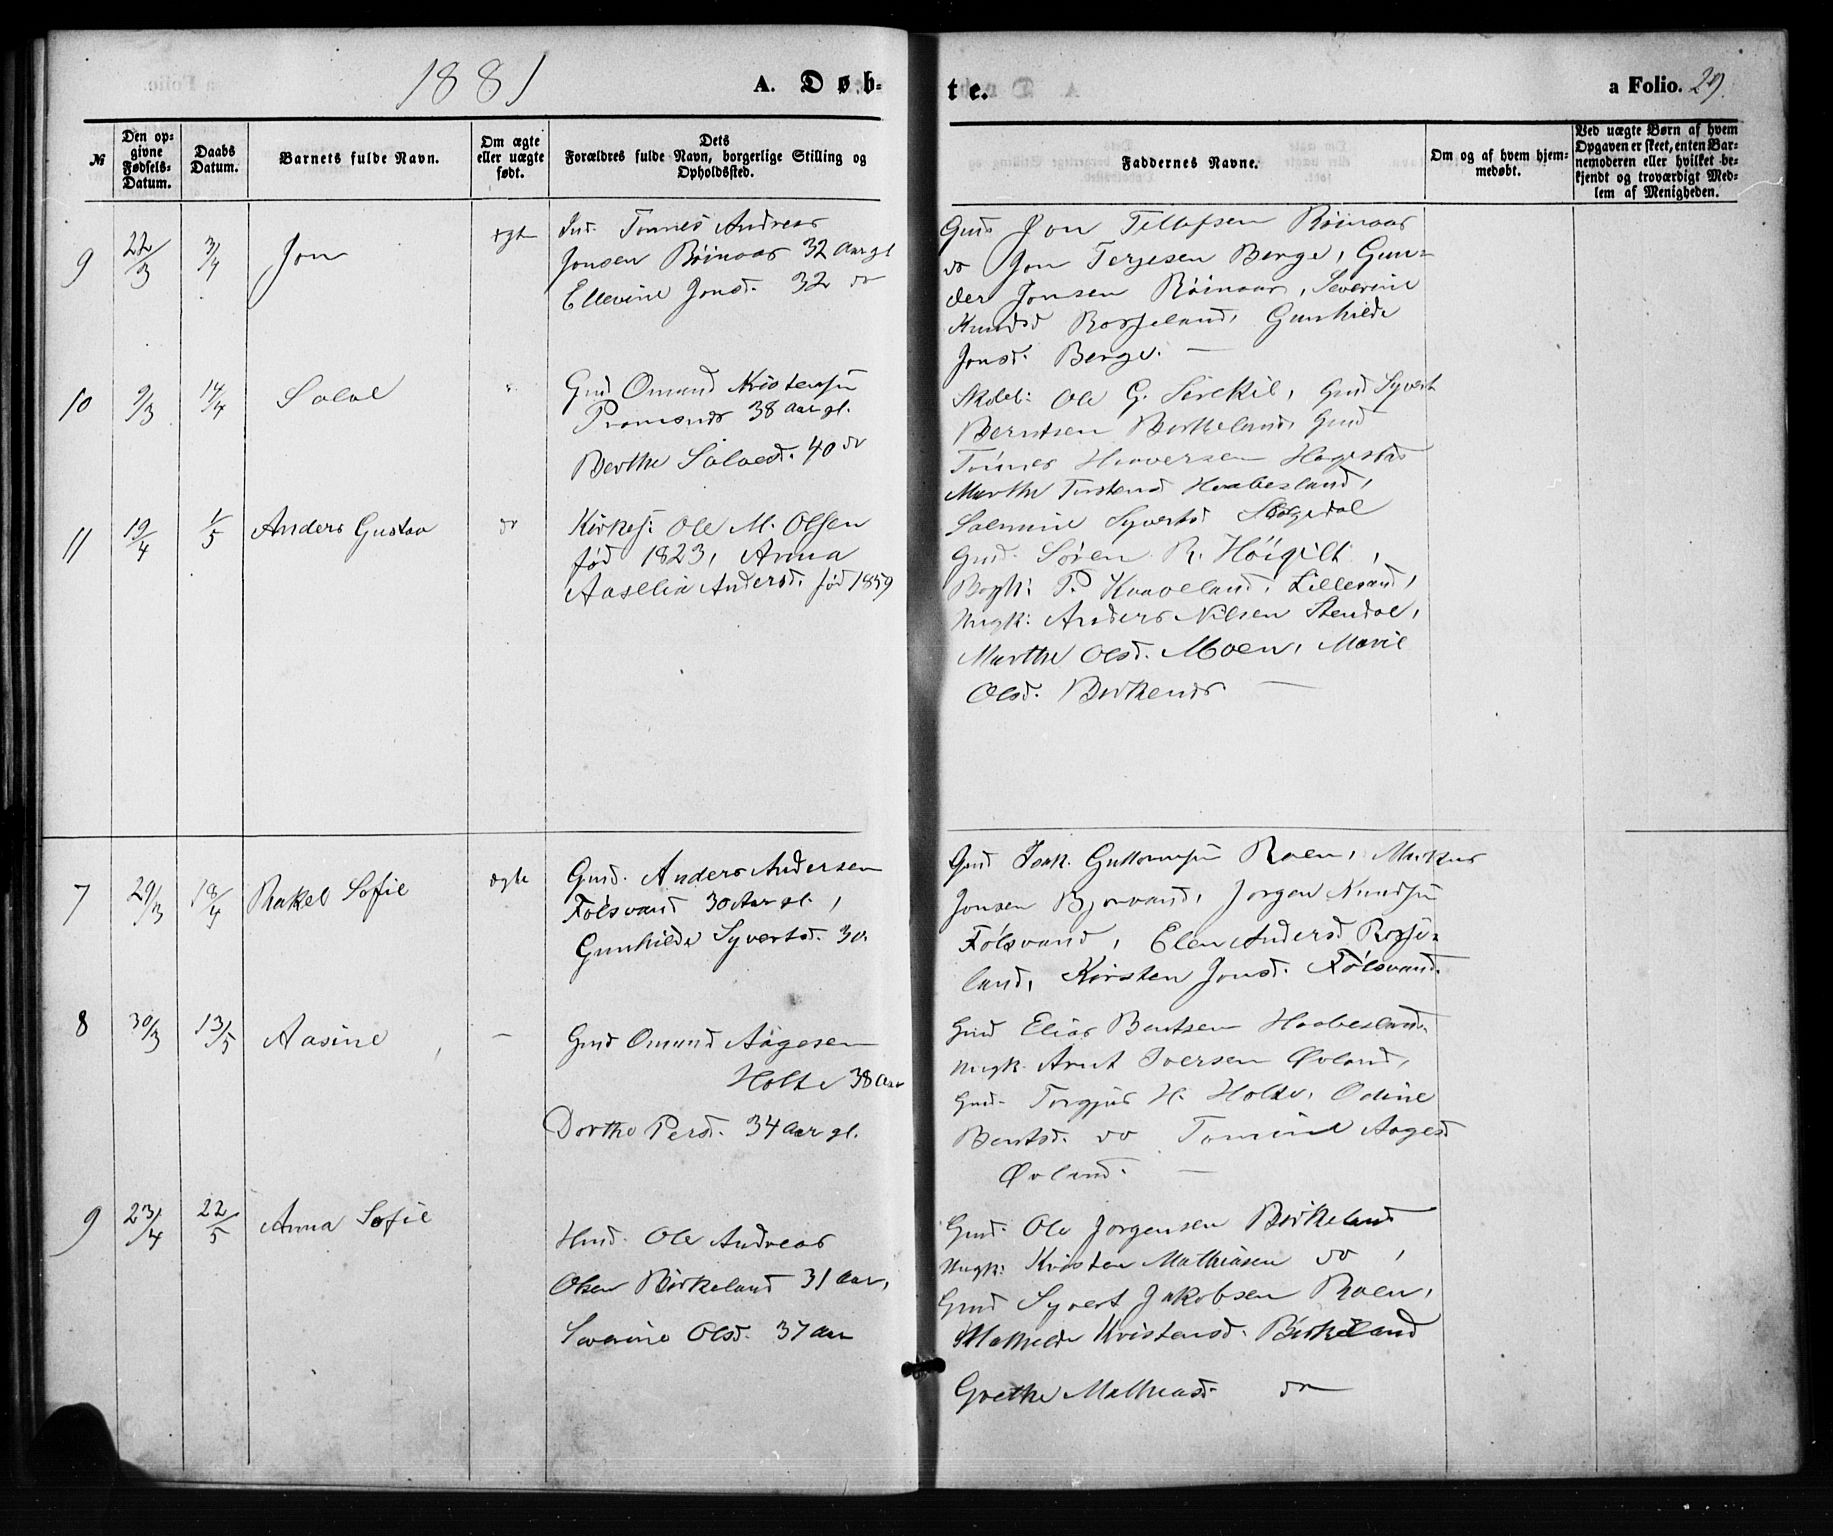 1881
A. Døb-
te.
a Folio. 29.
№
Den op-
givne
Fødsels-
Datum.
Daabs
Datum.
Barnets fulde Navn.
Om ægte
eller uægte
født.
Dets
Forældres fulde Navn, borgerlige Stilling og
Opholdssted.
Faddernes Navne.
Om og af hvem hjem-
medøbt.
Ved uægte Børn af hvem
Opgaven er skeet, enten Bar-
nemoderen eller hvilket be-
kjendt og troværdigt Med-
lem af Menigheden.
9 22/3 3/4 Jon ægte
Tønnes Andreas
Jonsen Röinaas 32 Aar gl
Ellevine Jonsd. 32 do
Gmd Jon Tellefsen Röinaas
do Jon Terjesen Berge, Gun-
der Jonsen Röinaas, Severine
Knudsd Rosseland, Gunhilde
Jonsd. Berge. —
10 9/3 14/4
Gmd Omund Kristensen
38 Aar gl.
Berthe Salvesd. 40 do
Ole G. Gmd Syvert
Berntsen Birkeland, Gmd
Tönnes Haaversen Hagestad
Marthe Torstensd Haabesland,
Salmine Syvertsd
11 19/4 1/5 Anders Gustav do
Kirkes: Ole M. Olsen
fød 1823, Anna
Aaselia Andersd. fød 1859
Gmd. Søren R. Höigilt,
P. Kaaveland, Lillesand,
Ungk: Anders Nilsen Stendal,
Marthe Olsd. Moen, Marie
Olsd. Birkenes —
7 29/3 18/4 Rakel Sofie ægte
Gmd. Anders Andersen
Fölsvand 30 Aar gl.,
Gunhilde Syvertsd. 30.
Gmd Isak Guttormsen Roen, Markus
Jonsen Bjorvand, Jörgen Knudsen
Fölsvand, Elen Andersd Rosse-
land, Kirsten Jonsd. Fölsvand.
8 30/3 13/5 Aasine —
Gmd Omund Aagesen
Holte 38 Aar
Dorthe Persd. 34 Aar gl.
Gmd Elias Bentsen Haabesland.
Ungk. Arnt Iversen Øvland,
Gmd. Torgjus H. Holte, Odine
Bentsd. do Tomine Aagesd
Øvland. —
9 23/4 22/5 Anna Sofie
Hmd. Ole Andreas
Olsen Birkeland 31 Aar,
Severine Olsd. 37 Aar
Gmd. Ole Jörgensen Birkeland
Ungk: Kristen Mathiasen do,
Gmd Syvert Jakobsen Roen,
Mathilde Kristensd. Birkeland
Grethe Mathiasd. do